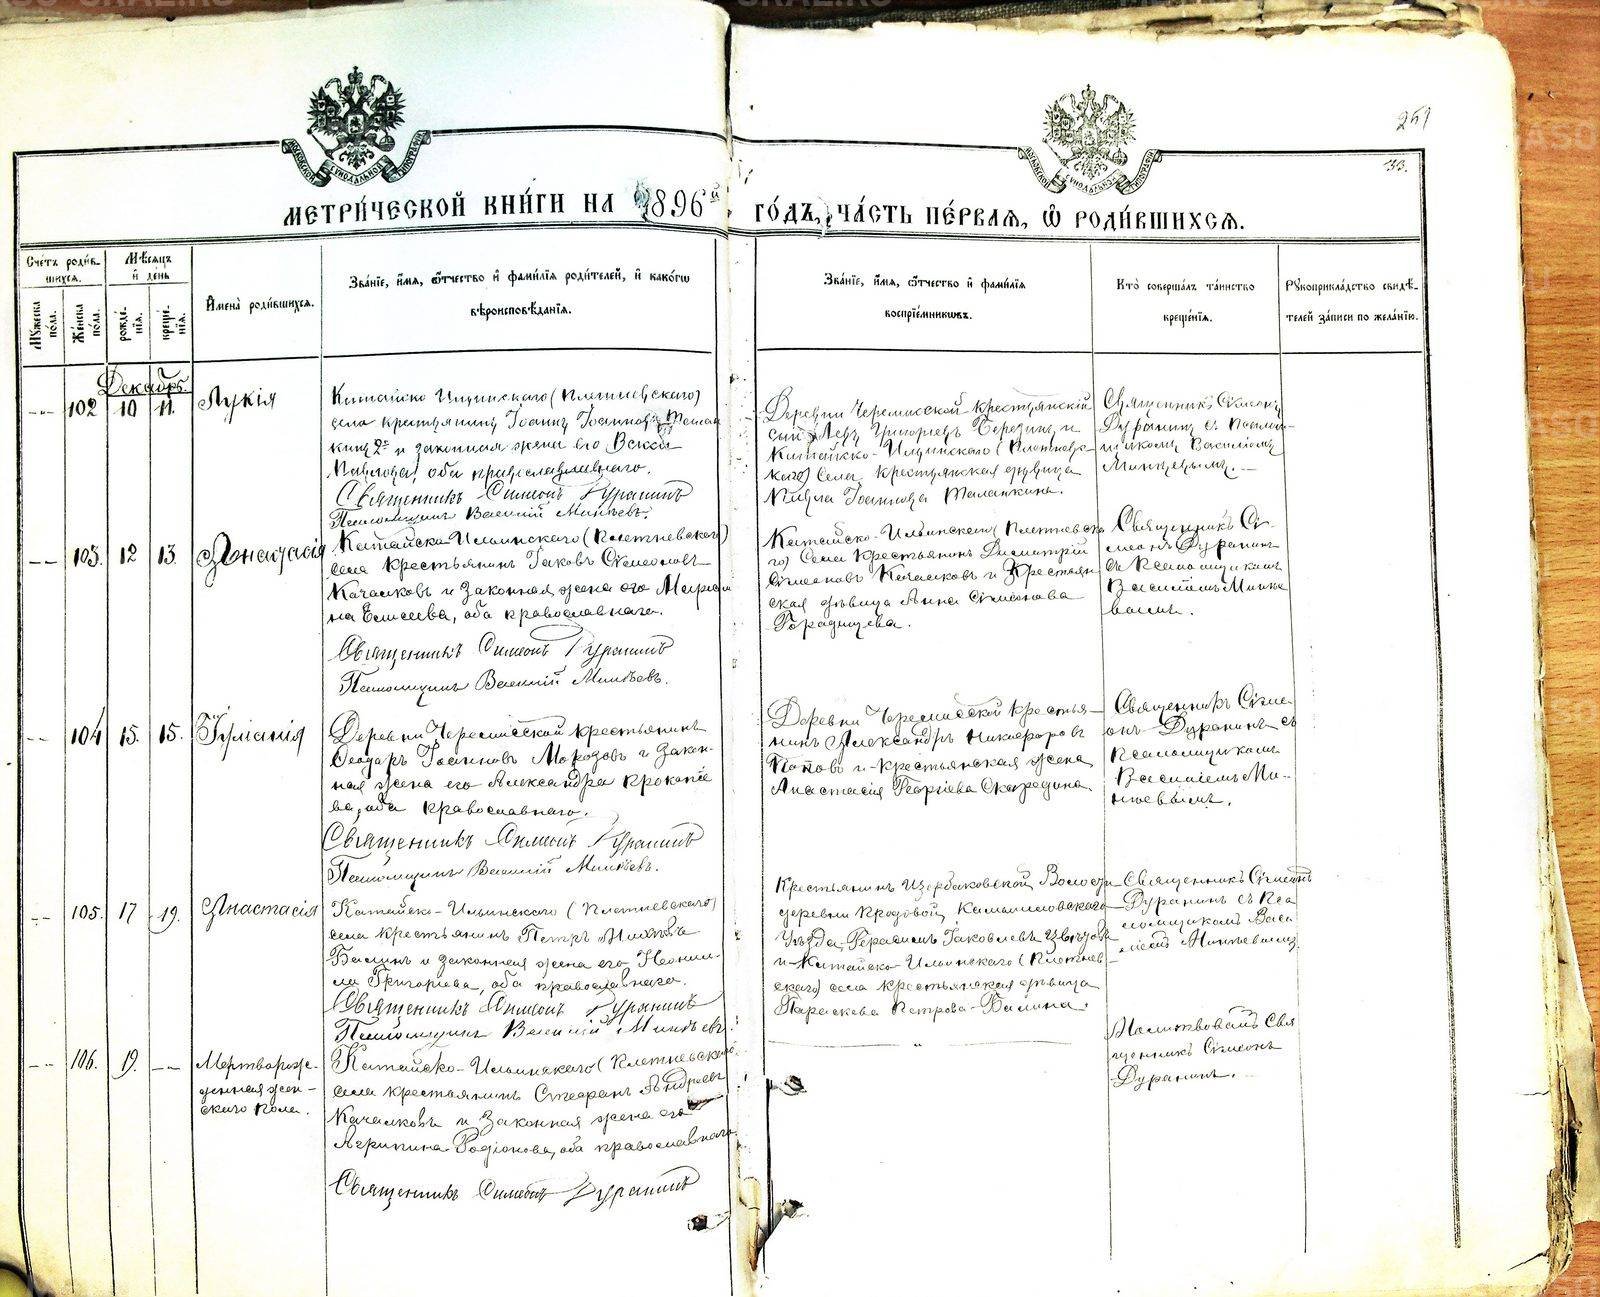 259
33.
МЕТРИ́ЧЕСКОЙ КНИ́ГИ НА 1896й ГО́ДЪ, ЧА́СТЬ ПЕ́РВАЯ, Ѿ РОДИ́ВШИХСЯ.
Сче́тъ роди́в-
шихся.
Мѣ́сяцъ
и де́нь
Му́жеска по́ла.
Же́нска по́ла.
рожде́-
нія.
креще́-
нія.
Имена̀ роди́вшихся.
Зва́ніе, и́мя, ѻ́тчество и фами́лія роди́телей, и како́гѡ
вѣроисповѣ́данія.
Зва́ніе, и́мя, ѻ́тчество и фами́лія
воспріе́мникѡвъ.
Кто̀ соверша́лъ та́инство
креще́нія.
Рꙋкоприкла́дство свидѣ́-
телей за́писи по жела́нію.
Декабрь.
102
10
11.
Лукія
Катайско Ильинскаго (Плетневскаго)
села крестьянинъ Іоаннъ Іоанновъ Талан
кинъ 2й и законная жена его Васса
Павлова, оба православнаго.
Священникъ Симеонъ Дуранинъ
Псаломщикъ Василій Минѣевъ.
Деревни Черемисской крестьянскій
сынъ Левъ Григорьевъ Березинъ и
Катайско-Ильинскаго (Плетневс-
каго) села крестьянская дѣвица
Іоаннова Таланкина.
Священникъ Сѵмеонъ
Дуранинъ с. Псалом-
щикомъ Василіемъ
Минѣевымъ.
103.
12
13.
Анастасія
Катайско-Ильинскаго (Плетневскаго)
села крестьянинъ Іаковъ Сѵмеоновъ
Качалковъ и законная жена его Мари
на Елисеева, оба православнаго.
Священникъ Симеонъ Дуранинъ
Псаломщикъ Василій Минѣевъ.
Катайско-Ильинскаго (Плетневска
го) села крестьянинъ Димитрій
Сѵмеоновъ Качалковъ и крестьян-
ская дѣвица Анна Сѵмеонова
Горадищева.
Священникъ Сѵ-
меонъ Дуранинъ
съ Псаломщикомъ
Василіемъ Минѣ
вымъ.
104
15.
15.
Іуліанія
Деревни Черемисской крестьянинъ
Ѳеодоръ Іоанновъ Морозовъ и закон-
ная жена его Александра Прокопіе
ва, оба православнаго.
Священникъ Симеонъ Дуранинъ
Псаломщикъ Василій Минѣевъ.
Деревни Черемисской крестья-
нинъ Александръ Никифоровъ
Поповъ и крестьянская жена
Анастасія Георгіева Скородина.
Священникъ Сѵме-
онъ Дуранинъ съ
Псаломщикомъ
Василіемъ Ми-
нѣевымъ.
105.
17
19.
Анастасія
Катайско-Ильинскаго (Плетневскаго)
села крестьянинъ Петръ
Балинъ и законная жена его Неонил-
ла Григорьева, оба православнаго.
Священникъ Симеонъ Дуранинъ
Псаломщикъ Василій Минѣевъ.
Крестьянинъ Щербаковской Волости
деревни Камышловскаго
Уѣзда Герасимъ Іаковлевъ
и Катайско-Ильинскаго (Плетнев-
скаго) села крестьянская дѣвица
Параскева Петрова Балина.
Священникъ Сѵмеонъ
Дуранинъ съ Пса
ломщикомъ Васи
ліемъ Минѣевымъ.
106.
19.
Мертворож-
денная жен-
скаго пола.
Катайско-Ильинскаго (Плетневскаго)
села крестьянинъ Стефанъ Андреевъ
Качалковъ и законная жена его
Агрипина Родіонова, оба православнаго
Священникъ Симеонъ Дуранинъ
Молитвовалъ Свя
щенникъ Сѵмеонъ
Дуранинъ.